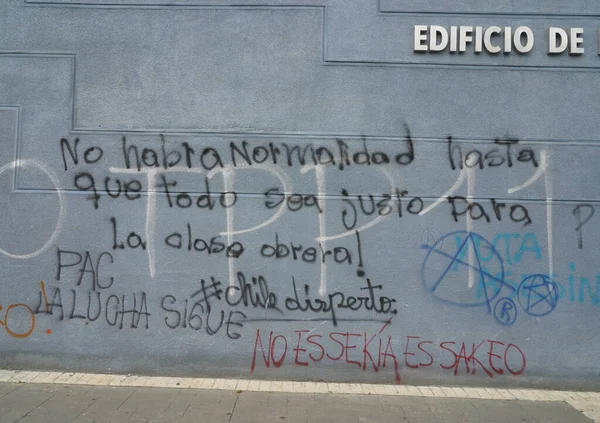 EDIFICIO DE
No habra Normalidad hasta
que todo sea justo para
La clase obrera!
#chile dizperto
NO TPP 11
PAC
LA LUCHA SIGUE
NO ES SEKÍA ES SAKEO
PUTA